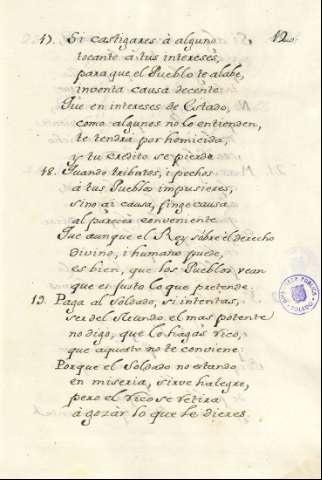 17. Si castigares à alguno 12.
tocante à tus intereses,
para que el Pueblo te alabe,
inventa causa decente.
Que en intereses de Estado,
como algunos no lo entienden,
te tendrà por homicida,
y tu credito se pierde.
18. Quando tributos, i pechos
à tus Pueblos impusieres,
sino ai causa, finge causa
al parecer conveniente.
Que aunque el Rey sobre el derecho
Divino, i humano puede,
es bien, que los Pueblos vean
que es justo lo que pretende.
19. Paga al Soldado, si intentas,
ser del Mundo el mas potente
no digo, que lo hagas rico,
que aquesto no te conviene.
Porque el Soldado no estando
en miseria, sirve halegre,
pero el rico se retira
à gozar lo que le dieres.
BIBLIOTECA PUBLICA
TOLEDO